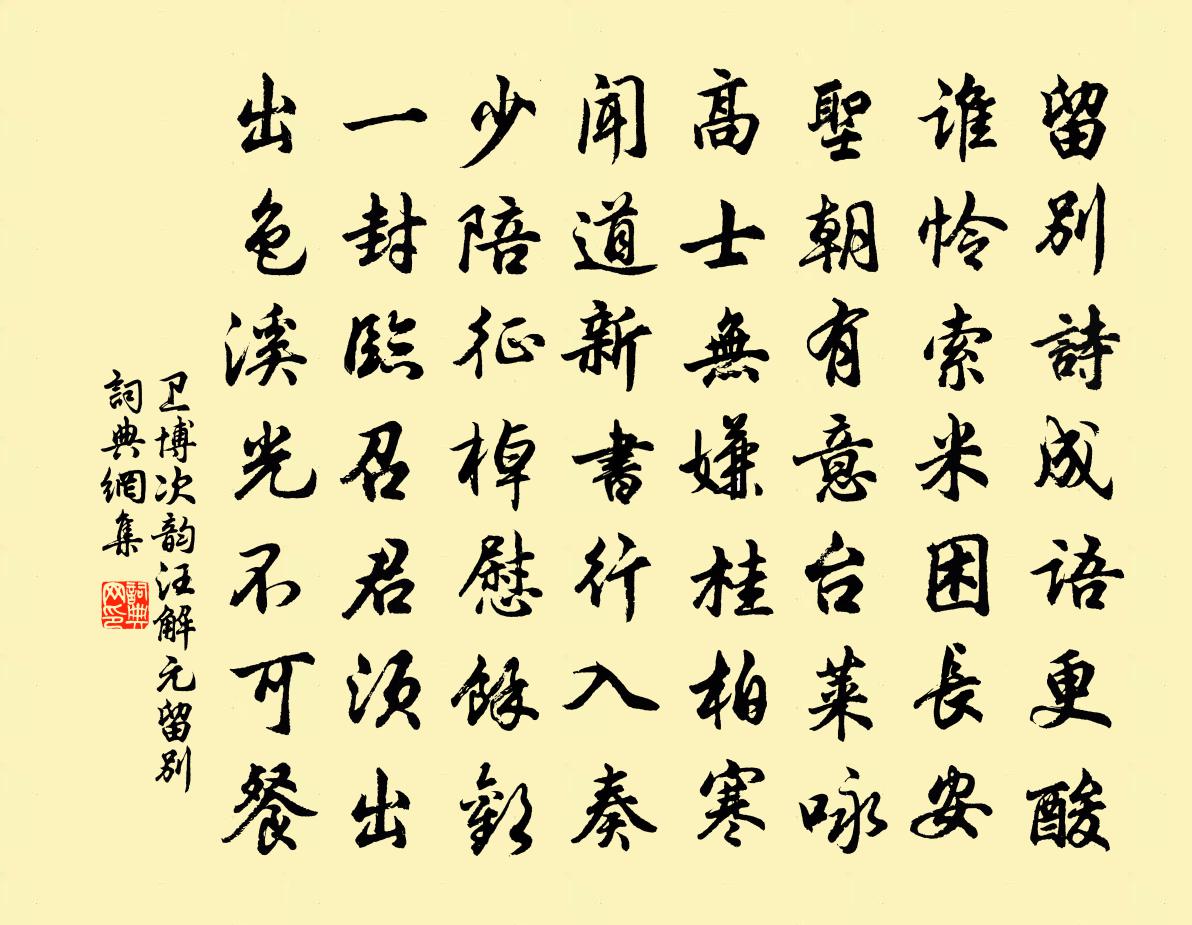 留别詩成语更酸
谁怜索米困長安
聖朝有意台莱咏
高士無嫌桂柏寒
闻道新書行入奏
少陪征棹慰餘歡
一封臨召君须出
出色溪光不可餐
卫博次韵汪解元留别
詞典網集
詞典网印